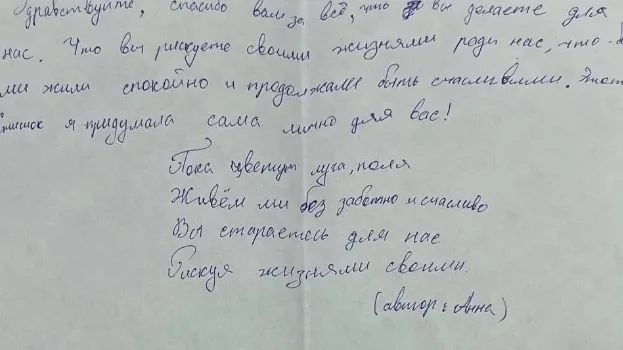 Здравствуйте, спасибо вам за всё, что вы делаете для
нас. Что вы рискуете своими жизнями ради нас, что-б
ми жили спокойно и продолжали быть счасливыми. Этот
стишок я придумала сама лично для вас!
Пока цветут луга, поля
Живём ми без заботно и счасливо
Вы стараетесь для нас
Рискуя жизнями своими.
(автор: Анна)